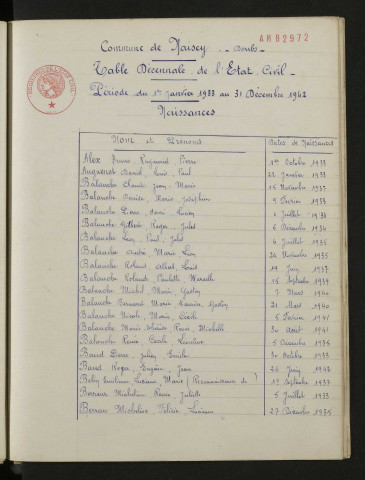 AM 82972
Commune de Naisey - Doubs
Table Décennale de l'Etat Civil
Période du 1er Janvier 1933 au 31 Décembre 1942
Naissances
Nom et Prénoms Dates de Naissances
Alex Pierre 1er Octobre 1933
Louis Paul 22 Janvier 1933
Balanche Claude Jean Marie 15 Novembre 1937
Balanche Denise Marie Joséphine 9 Février 1933
Balanche Pierre Henri Lucien 1 Juillet 1936
Balanche Gilbert Roger Jules 6 Décembre 1934
Balanche Léon Paul Jules 6 Juillet 1935
Balanche André Marie Léon 24 Novembre 1935
Balanche Roland Albert Louis 19 Juin 1937
Balanche Paulette 15 Septembre 1939
Balanche Michel Marie Gaston 7 Mars 1940
Balanche Bernard Marie Gaston 21 Mars 1940
Balanche Nicole Marie Cécile 5 Février 1941
Balanche Marie Rose Michelle 30 Août 1941
Balanche Pierre 5 Décembre 1936
Baud Pierre Julien Emile 30 Octobre 1933
Baud Roger Eugène Jean 26 Juin 1942
Marie (Reconnaissance de) 1er Septembre 1937
Micheline Renée Juliette 5 Juillet 1933
Micheline 27 Décembre 1935